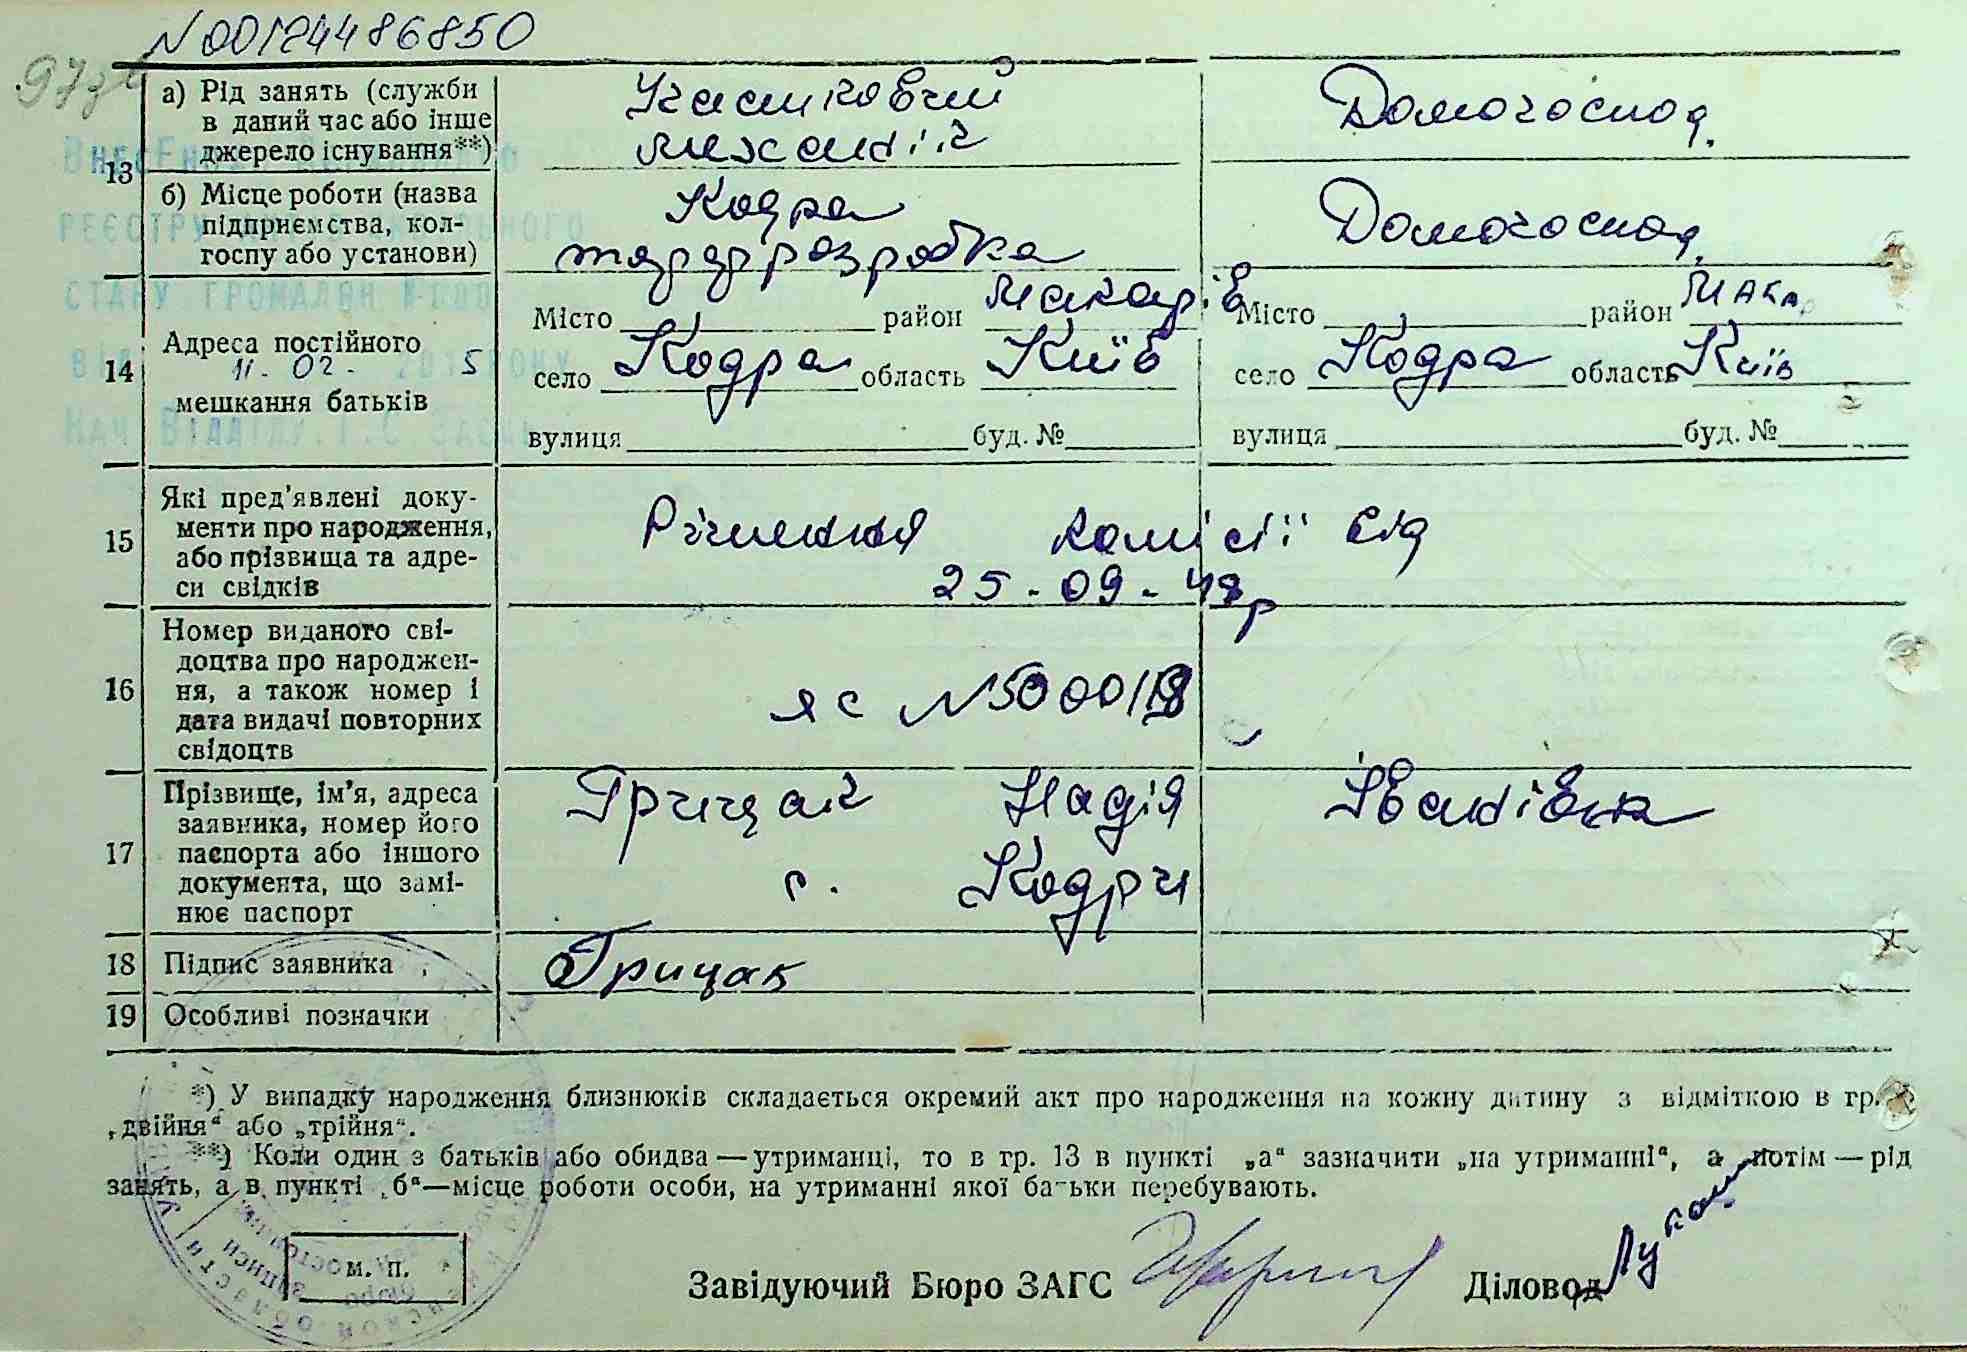 N00124486850
13
а) Рід занять (служби
в даний час або інше
джерело існування**)
механік
Домогоспод.
б) Місце роботи (назва
підприємства, кол-
госпу або установи)
Кодра
торфрозробка
Домогоспод.
14
Адреса постійного
мешкання батьків
11. 02. 2015 року
Місто район Макарів
село Кодра область Київ
вулиця буд. №
Місто район Мака
село Кодра область Київ
вулиця буд. №
15
Які пред'явлені доку-
менти про народження,
або прізвища та адре-
си свідків
Рішення комісії від
25-09-48р
16
Номер виданого сві-
доцтва про народжен-
ня, а також номер і
дата видачі повторних
свідоцтв
яс N5000118
17
Прізвище, ім'я, адреса
заявника, номер його
паспорта або іншого
документа, що замі-
нює паспорт
Грицай Надія Іванівна
с. Кодри
18 Підпис заявника
Грицак
19 Особливі позначки
*) У випадку народження близнюків складається окремий акт про народження на кожну дитину з відміткою в гр.
„двійня“ або „трійня“.
**) Коли один з батьків або обидва — утриманці, то в гр. 13 в пункті „а“ зазначити „на утриманні“, а потім — рід
занять, а в пункті „б“—місце роботи особи, на утриманні якої батьки перебувають.
м. п.
Завідуючий Бюро ЗАГС
Діловод